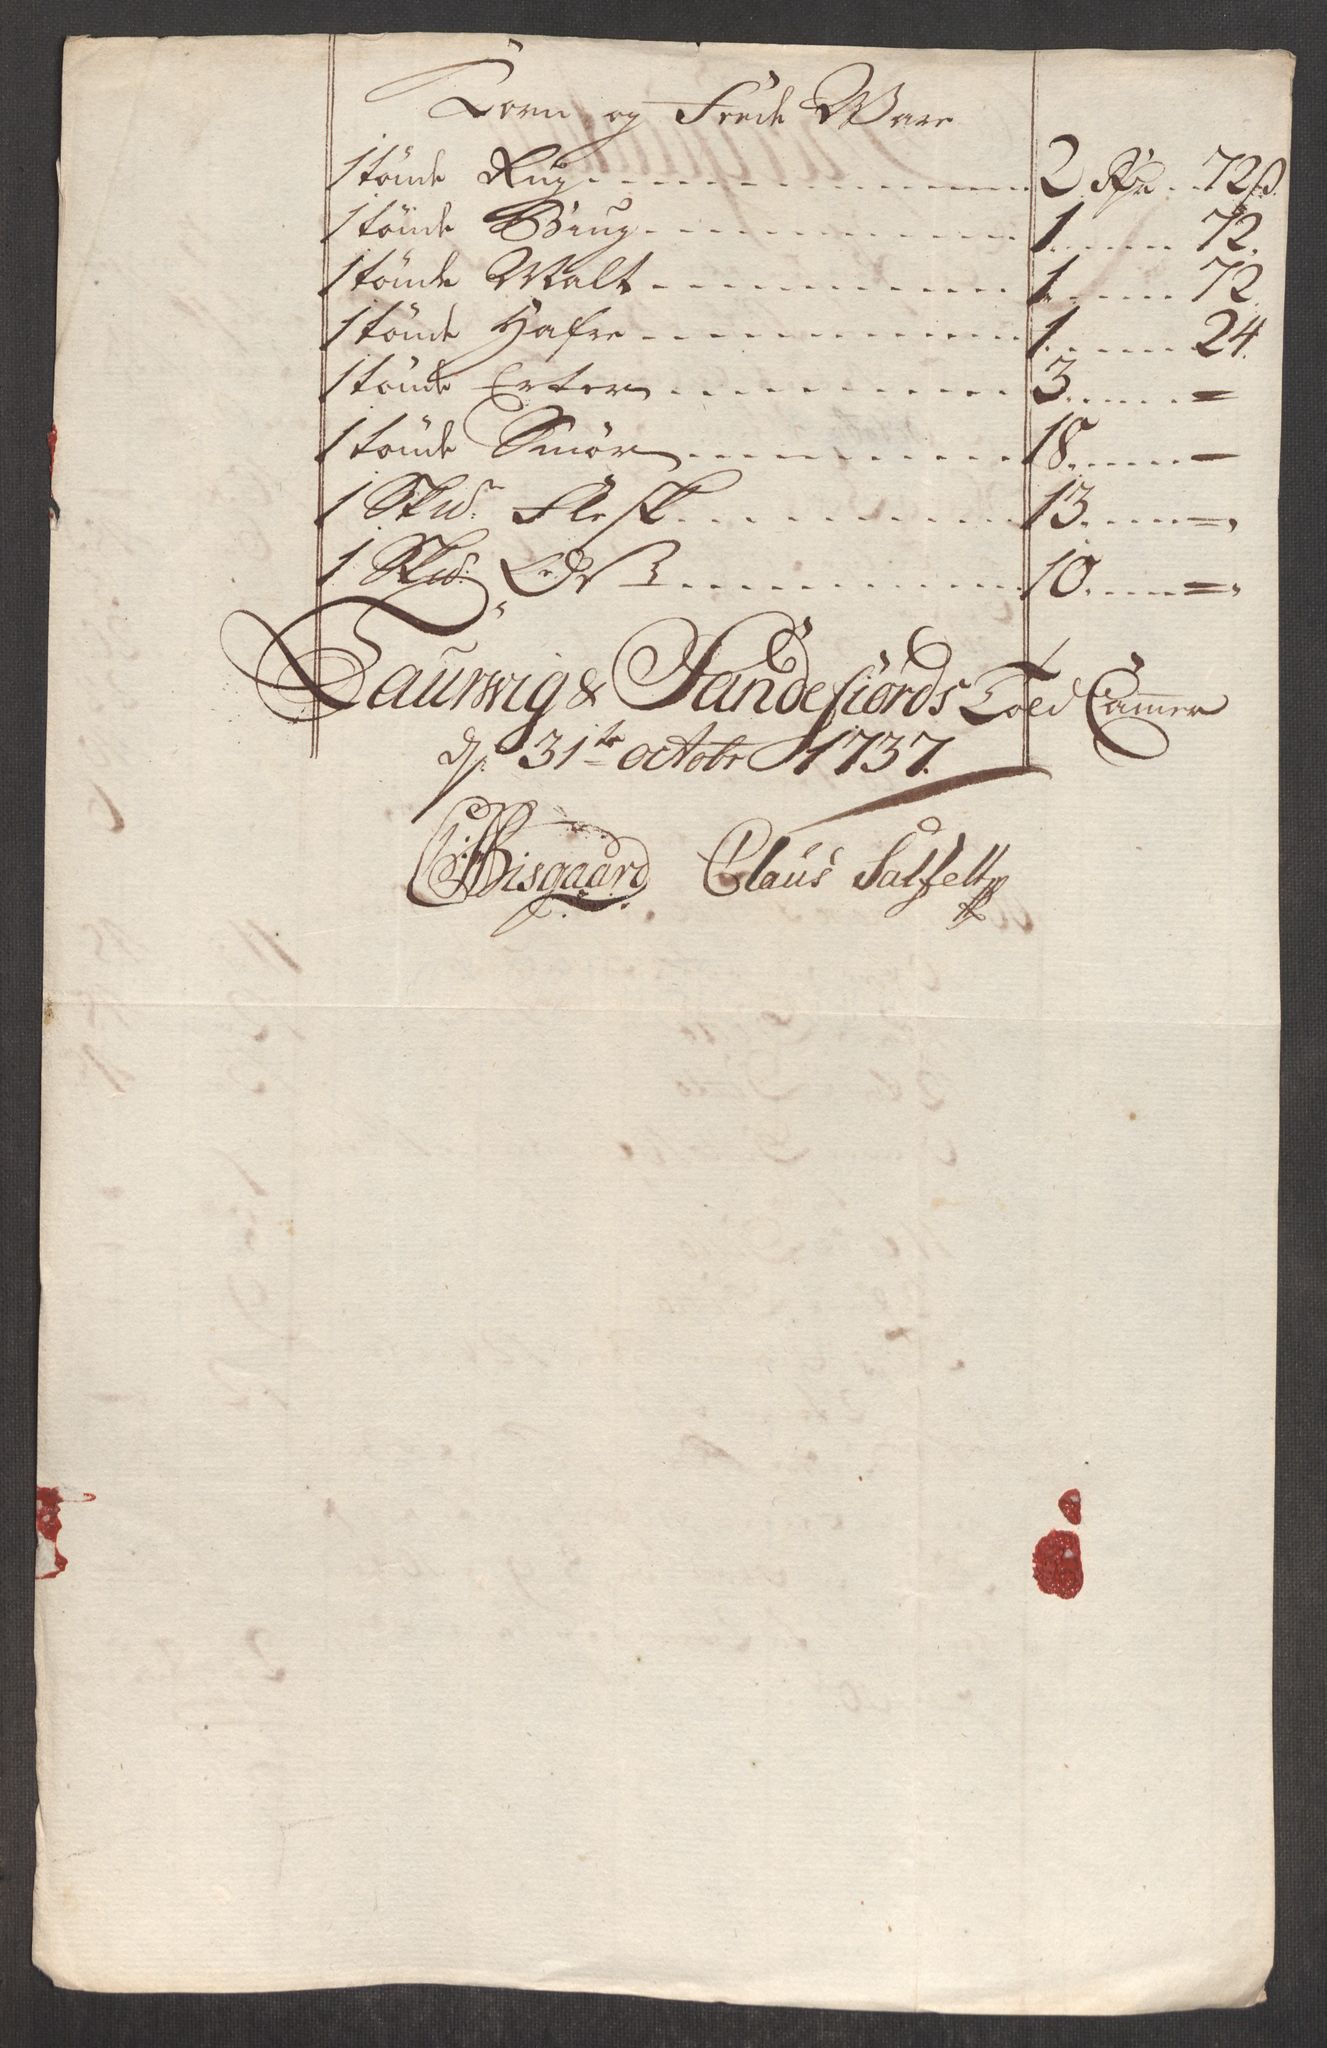 Korn og Fede Ware
1 tönde Rug 2 Rdr. 72 ß.
1 tönde Biug 1 72.
1 tönde Malt 1 72.
1 tönde Hafre 1 24.
1 tönde Erter 3 =
1 tönde Smör 18 —
1 Skd. Flesk 13 =
1 Skd. 10 =
Laurwig & Sandefiords Told Cammer
d. 31te octobr 1737.
Wisgaard Claus Salfelt